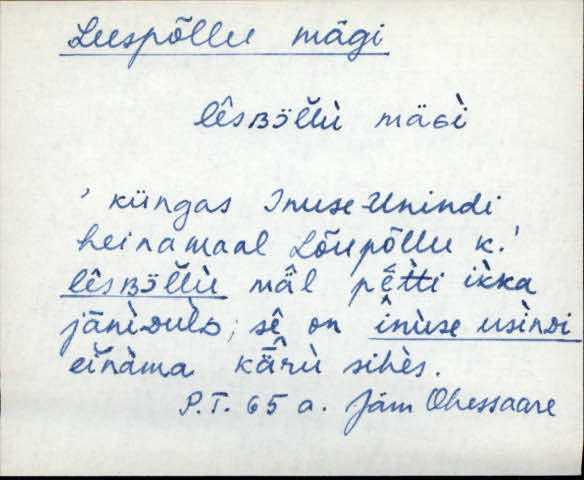 Leespõllu mägi
lêsʙɔ̈l̆lù mäɢì
' küngas Inuse Unindi
heinamaal Lõupõllu k.'
lêsʙɔ̈l̆lù mä̂l pêtti ikka
jānìᴅulᴅ; sê on înùse usìnᴅi
eĭnàma kä̂rù sihès.
P.T. 65 a. Jäm Ohessaare